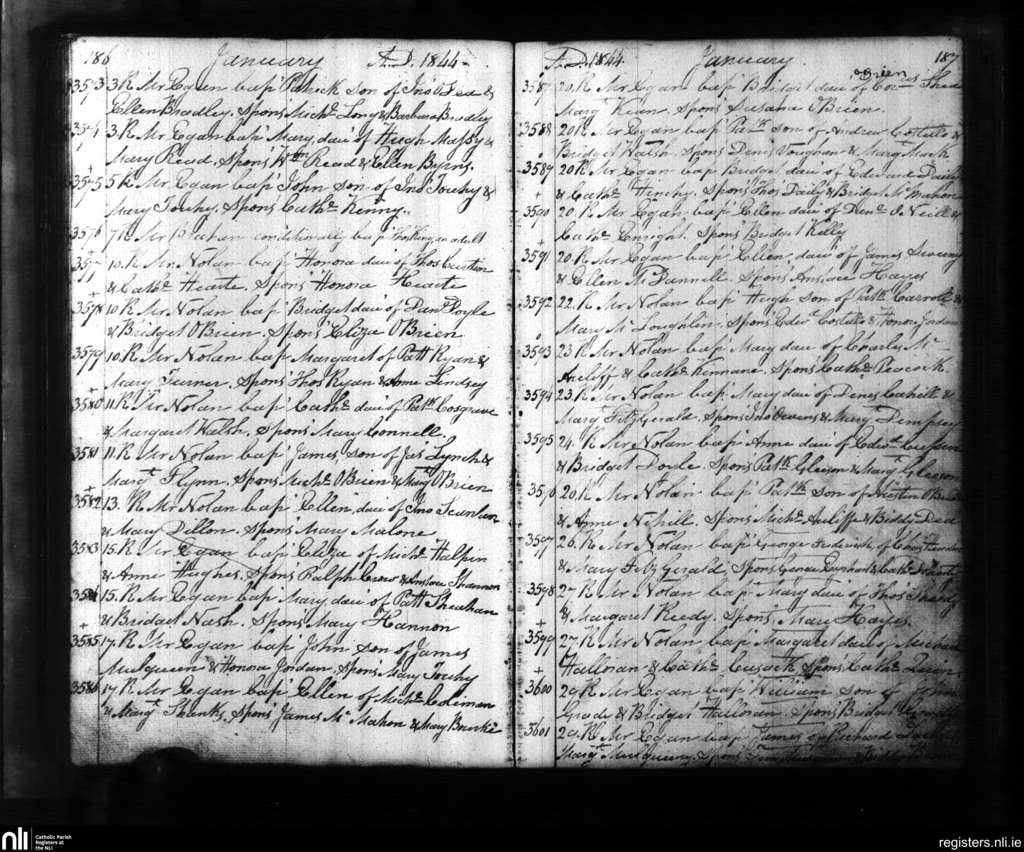 186 January A.D. 1844
3573 3 R. Mr Egan bap' Patrick son of Jno &
Ellen Bradley. Spons' Michl Long & Barbara Bradley
3574 3 R. Mr Egan bap' Mary dau' of Hugh Massy &
Mary Read. Spons' Wm Read & Ellen Byrns.
3575 5 R Mr Egan bap' John son of Jno Touhy &
Mary Touhy. Spons' Cathe Kenny.
3576 7 R Mr conditionally bap' an adult
3577 10. R. Mr. Nolan bap' Honora dau' of Thos
& Cathe Hearte. Spons' Honora Hearte
3578 10 R. Mr Nolan bap' Bridget dau' of Danl Doyle
& Bridget OBrien. Spons' Eliza OBrien
3579 10. R Mr Nolan bap' Margaret of Patt Ryan &
Mary Turner. Spons' Thos Ryan & Anne Lindsey
3580 11. R Mr Nolan bap' Cathe dau' of Patk Cosgrave
& Margaret Walsh. Spons' Mary Connell.
3581 11. R Mr Nolan bap' James son of Jas Lynch &
Margt Flynn. Spons' Michl OBrien & Margt OBrien
3582 13. R Mr Nolan bap' Ellen dau' of Jno Scanlan
& Mary Dillon. Spons' Mary Malone
3583 15. R Mr Egan bap' Eliza of Michl Halpin
& Anne Hughes. Spons' Ralph Crow & Anstace Shannon
3584 15. R Mr Egan bap' Mary dau' of Patt Sheahan
& Bridget Nash. Spons' Mary Hannon
3585 17. R Mr Egan bap' John son of James
Mulqueen & Honora Jordan. Spons' Mary Touhy
3586 17 R Mr Egan bap' Ellen of Michl Coleman
& Margt Shanks. Spons' James McMahon & Mary Bourke
A.D. 1844 January 187
OBrien
3587 20. R Mr Egan bap' Bridget dau' of
Margt Kean. Spons' Susana OBrien.
3588 20 R Mr Egan bap' Patk son of Andrew Costello &
Bridget Walsh. Spons Denis Voughan & Margt Mack
3589 20 R Mr Egan bap' Bridget dau' of Edward Daily
& Cathe Henchy. Spons' Thos Daily & Bridget McMahon
3590 20. R Mr Egan bap' Ellen dau' of Denis O Neill &
Cathe Enright. Spons Bridget Kelly
3591 20. R Mr Egan bap' Ellen dau' of James Sweeny
& Ellen McDannell. Spons' Anstace Hayes
3592 22. R Mr Nolan bap' Hugh son of Patk Carroll &
Mary McLoughlin. Spons Edwd Costello & Honor Jordan
3593 23 R Mr Nolan bap' Mary dau' of Charly Mc
Auliff & Cathe Kennane. Spons' Cathe Peacock.
3594 23. R Mr Nolan bap' Mary dau' of Denis Cahill &
Margt FitzGerald. Spons Jno Owens & Margt Dempsey
3595 24. R Mr Nolan bap' Anne dau' of Edwd
& Bridget Doyle. Spons' Patk Gleeson & Margt Gleeson
20. R Mr Nolan bap' Patk son of Austin OBrien
& Anne Nehill. Spons' Michl Auliffe & Biddy Dea
3597 26. R Mr Nolan bap' George Frederick of Chas
& Mary FitzGerald. Spons George
3598 27 R Mr Nolan bap' Mary dau' of Thos
& Margaret Reedy. Spons' Mary Hayes.
3599 27. R Mr Nolan bap' Margaret dau' of Michael
Halloran & Cathe Cusack. Spons Cathe Quin.
3600 29. R Mr Egan bap' William son of John
Grady & Bridget Halloran. Spons Bridget Grady
3601 29. R Mr Egan bap' James of Richard
Margt Mulqueeny. Spons
nli Catholic Parish
Registers at
the NLI
registers.nli.ie